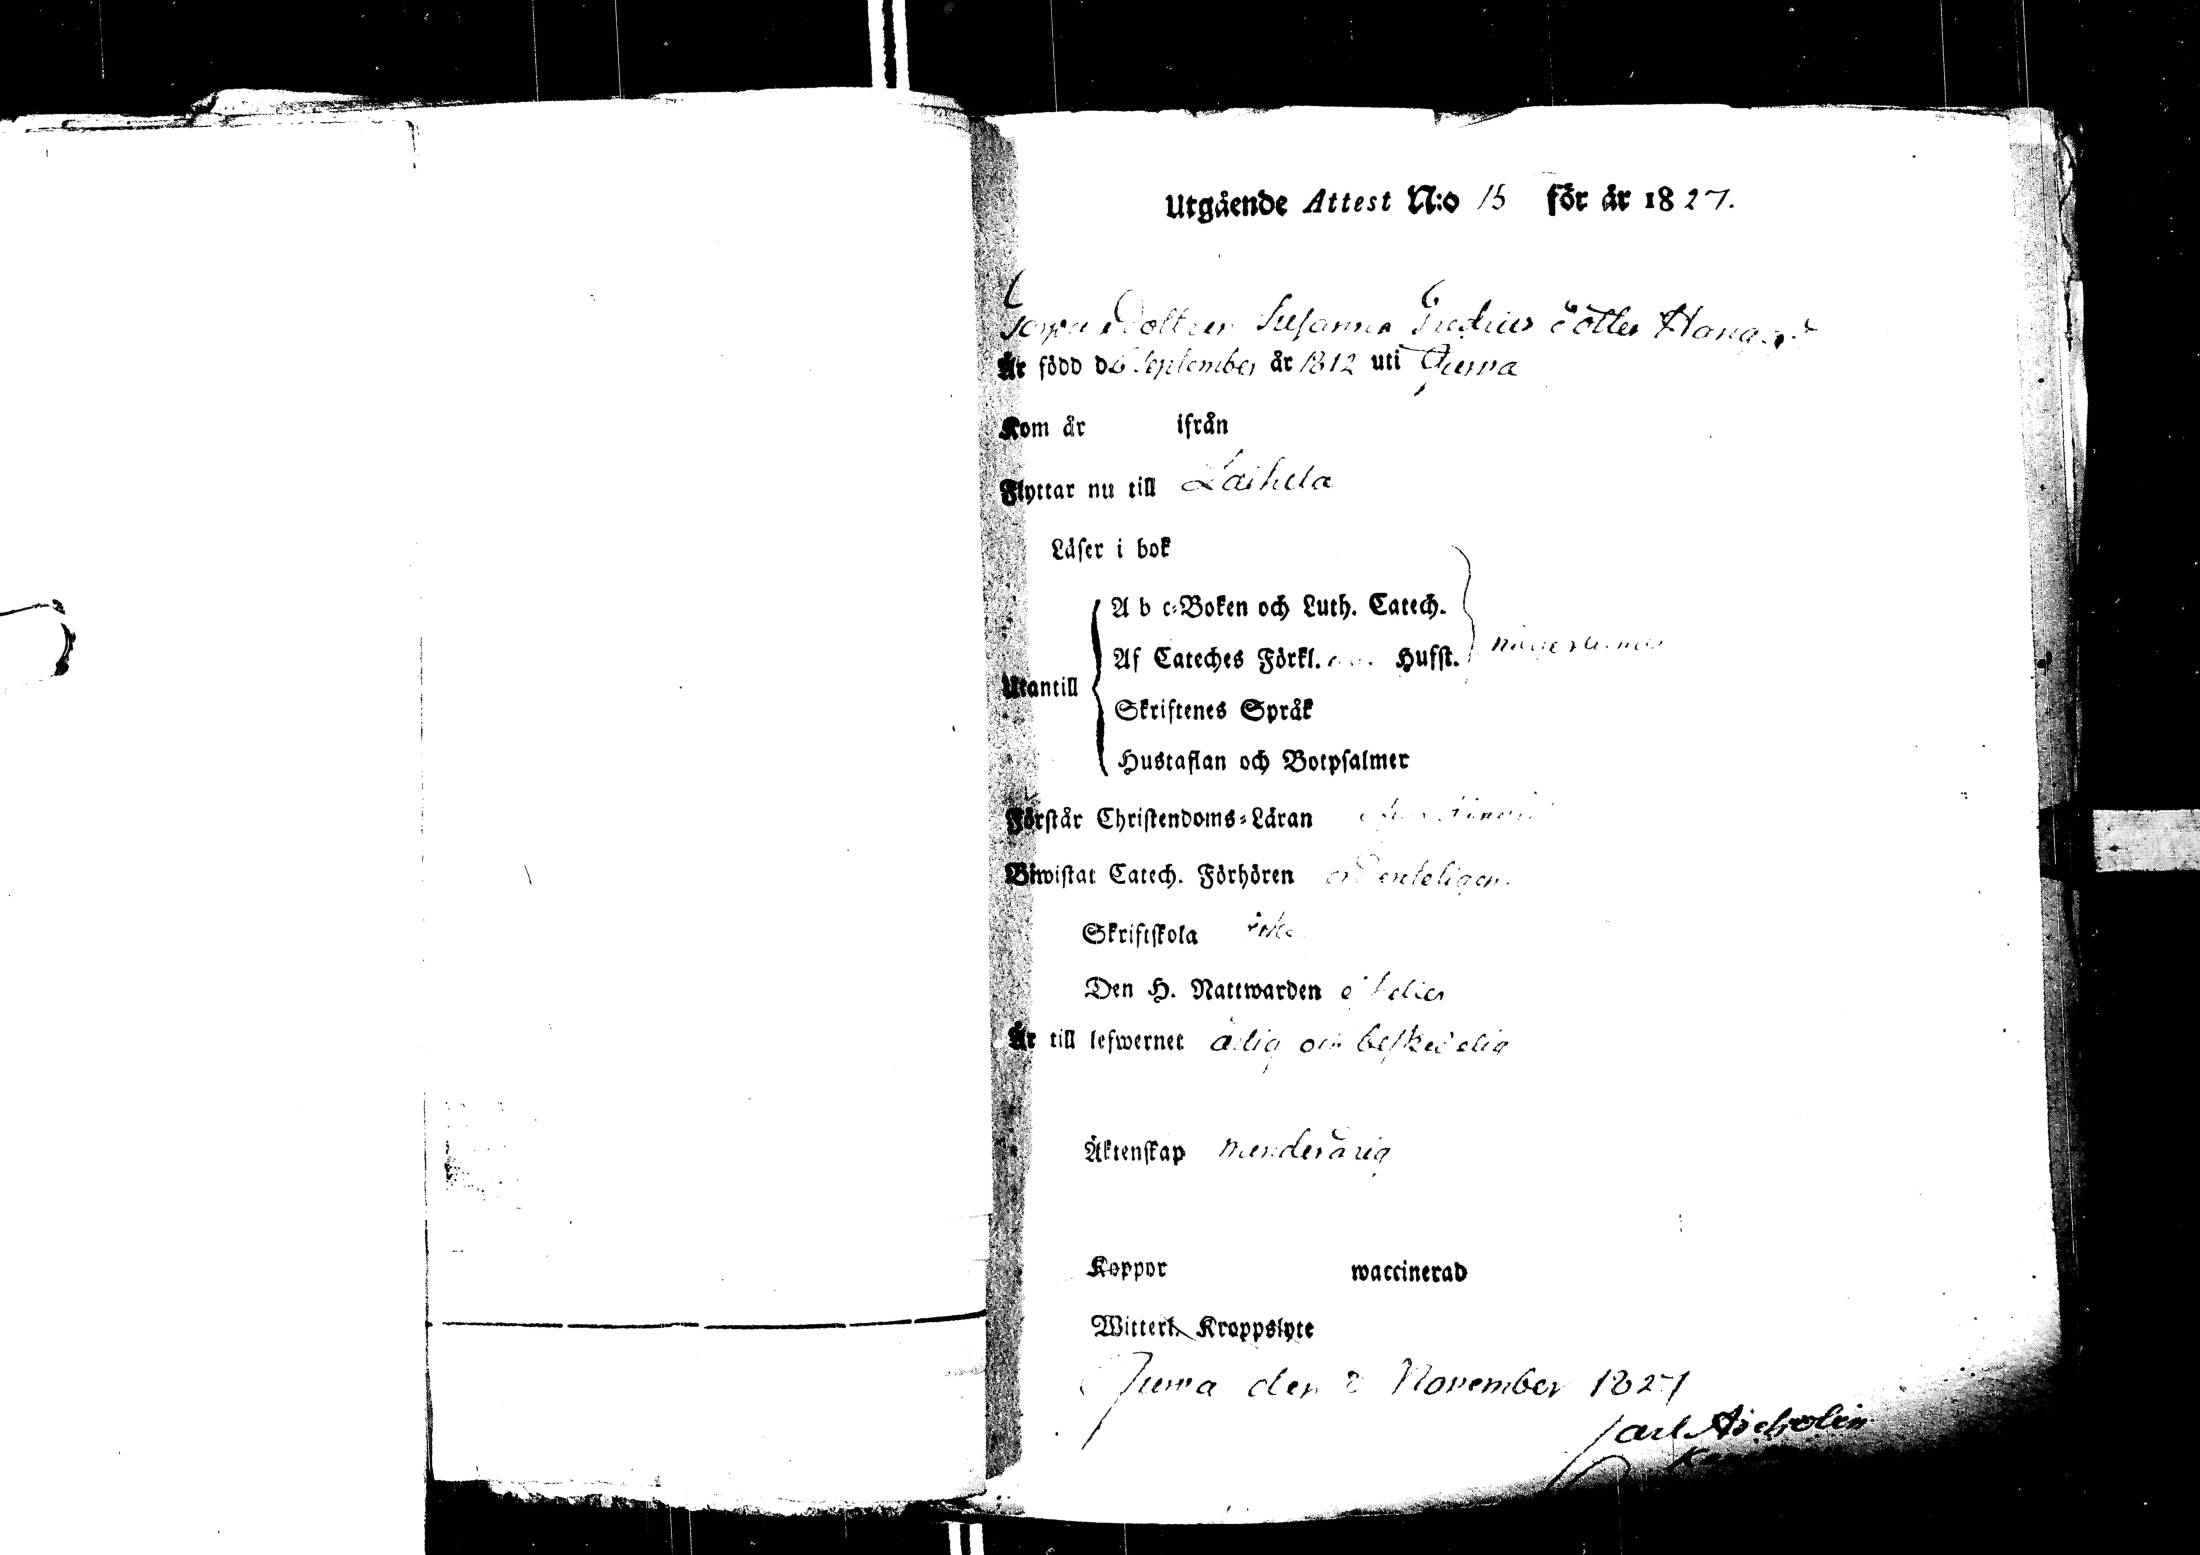 Utgående Attest N:o 15 för år 1827.
Dottren Susanna dotter
Är född d. 6 September år 1812 uti Jurva
Kom år ifrån
Flyttar nu till Laihela
Läser i bok
A b c-Boken och Luth. Catech.
Af Cateches Förkl. Husst.
Utantill
Skriftenes Språk
Hustaflan och Botpsalmer
Förstår Christendoms-Läran
Biwistat Catech. Förhören ordenteligen.
Skriftskola icke
Den H. Nattwarden ej heller
Är till lefwernet ärlig och beskedelig
Äktenskap menderårig
Koppor waccinerad
Witterl. Kroppslyte
Jurva den November 1827
Carl